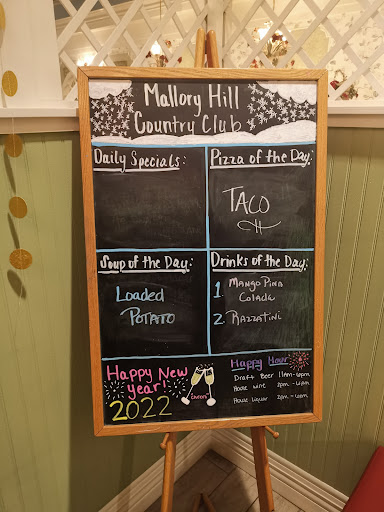 Mallory Hill
Country Club
Daily Specials:
Pizza of the Day:
TACO
Soup of the Day:
Loaded
POTATO
Drinks of the Day:
1. MANGO PINA
COLADA
2. RAZZATINI
Happy New
year!
2022
cheers!
Happy Hour
Draft Beer 11am-6pm
House wine 2pm-6pm
House Liquor 2pm-6pm